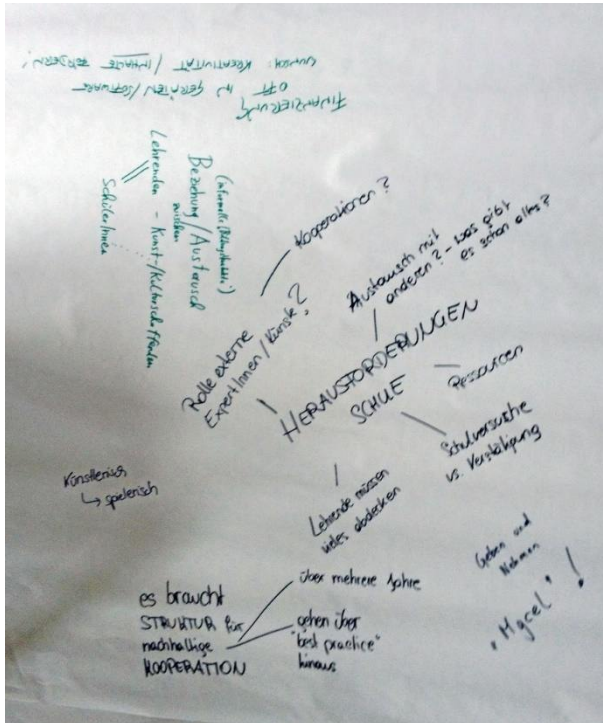 FINANZIERUNG
OFT IN GERÄTEN/SOFTWARE
WUNSCH: KREATIVITÄT/INHALTE FÖRDERN!
Beziehung/Austausch
zwischen
Lehrenden - Kunst-/Kulturschaffenden
SchülerInnen
Kooperationen?
Rolle externe
ExpertInnen/Künstl.?
Austausch mit
anderen? - was gibt
es schon alles?
HERAUSFORDERUNGEN
SCHULE
Ressourcen
Schulversuche
vs. Verstätigung
Lehrende müssen
vieles abdecken
Künstlerisch
↳ spielerisch
es braucht
STRUKTUR für
nachhaltige
KOOPERATION
über mehrere Jahre
gehen über
"best practice"
hinaus
Geben und
Nehmen
"Mycel"!